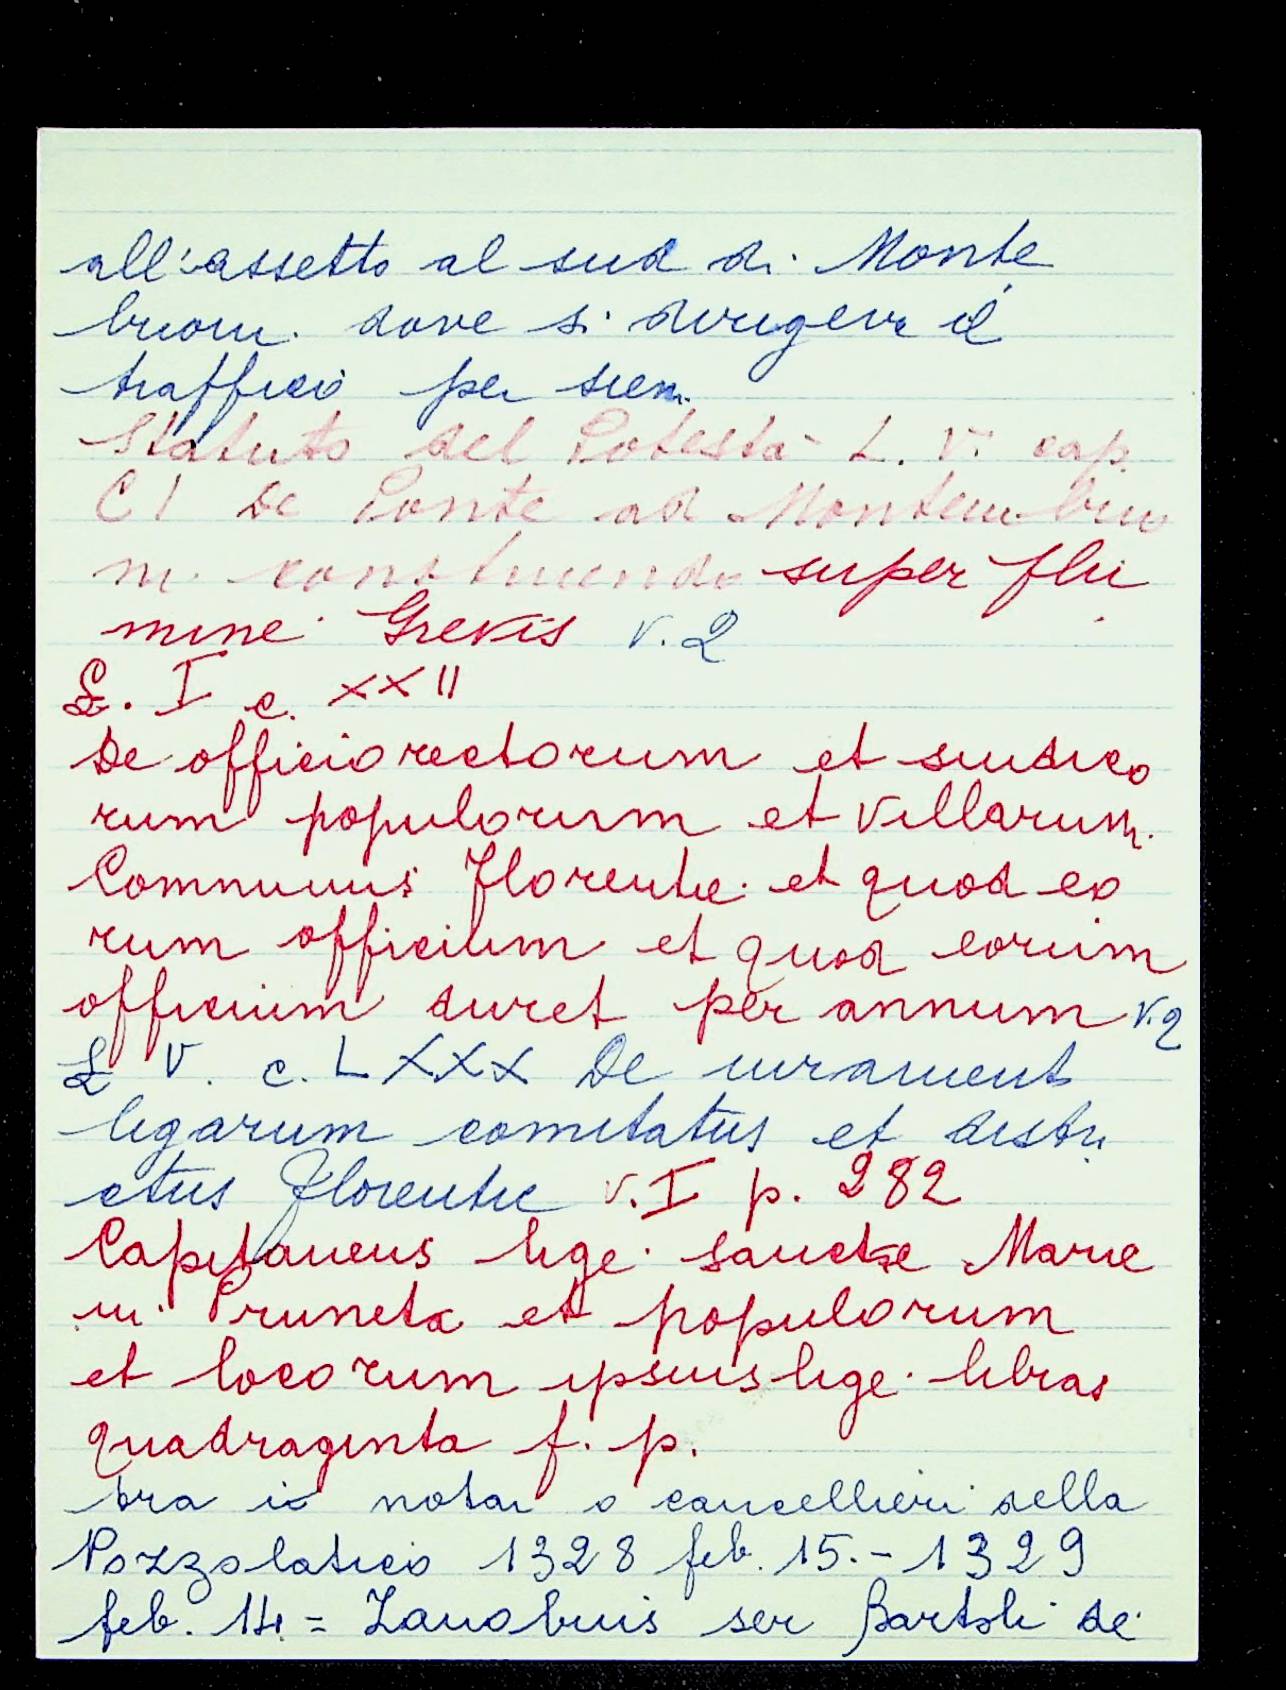 all'assetto al sud di Monte
buoni dove si dirigeva il
traffico per siena
Statuto del Potestà L. V. cap.
CI De Ponte ad Montembuo
ni construendo super flu
mine Grevis v. 2
L. I c. XXII
De officio rectorum et sindico
rum populorum et villarum
Comunnis Florentie et quod eo
rum officium et quod eorum
officium duret per annum v. 2
L V. c. LXXX De iurament
ligarum comitatus et distri
ctus Florentie v. I p. 282
Capitaneus lige sancte Marie
in Pruneta et populorum
et locorum ipsius lige libras
quadraginta f. p.
tra i notai o cancellieri della
Pozzolatico 1328 feb. 15. - 1329
feb. 14. = Zanobius ser Bartoli de